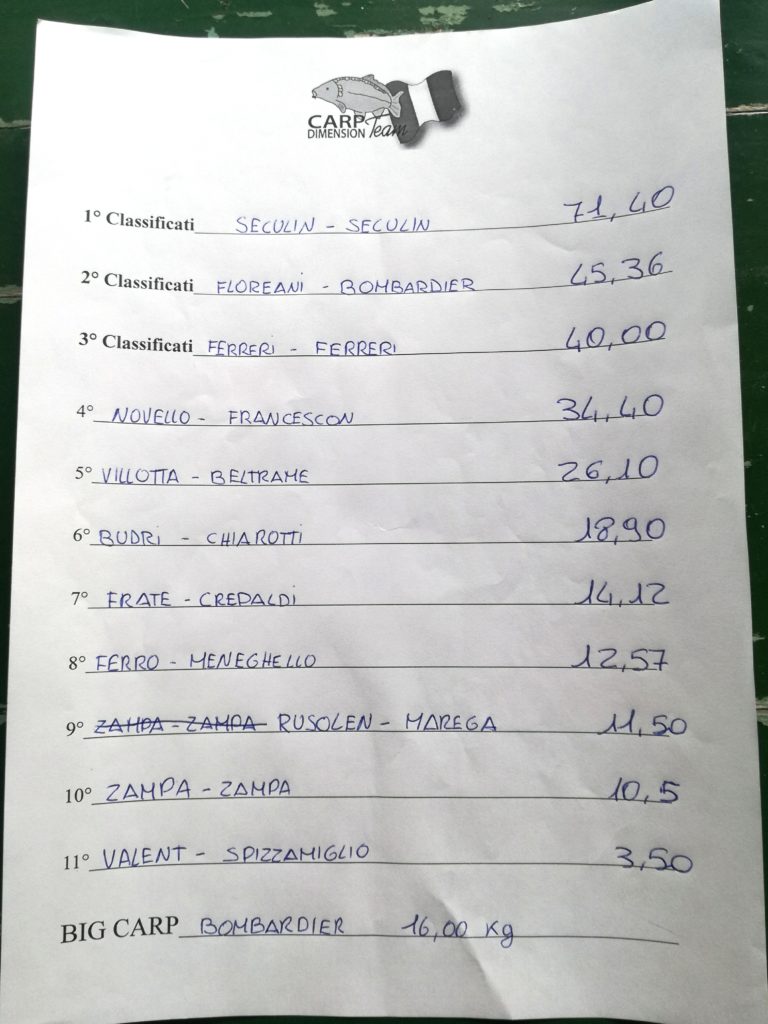 CARP
DIMENSION Team
1° Classificati SECULIN - SECULIN 71,40
2° Classificati FLOREANI - BOMBARDIER 45,36
3° Classificati FERRERI - FERRERI 40,00
4° NOVELLO - FRANCESCON 34,40
5° VILLOTTA - BELTRAME 26,10
6° BUDRI - CHIAROTTI 18,90
7° FRATE - CREPALDI 14,12
8° FERRO - MENEGHELLO 12,57
9° ZAMPA - ZAMPA RUSOLEN - MAREGA 11,50
10° ZAMPA - ZAMPA 10,5
11° VALENT - SPIZZAMIGLIO 3,50
BIG CARP BOMBARDIER 16,00 Kg